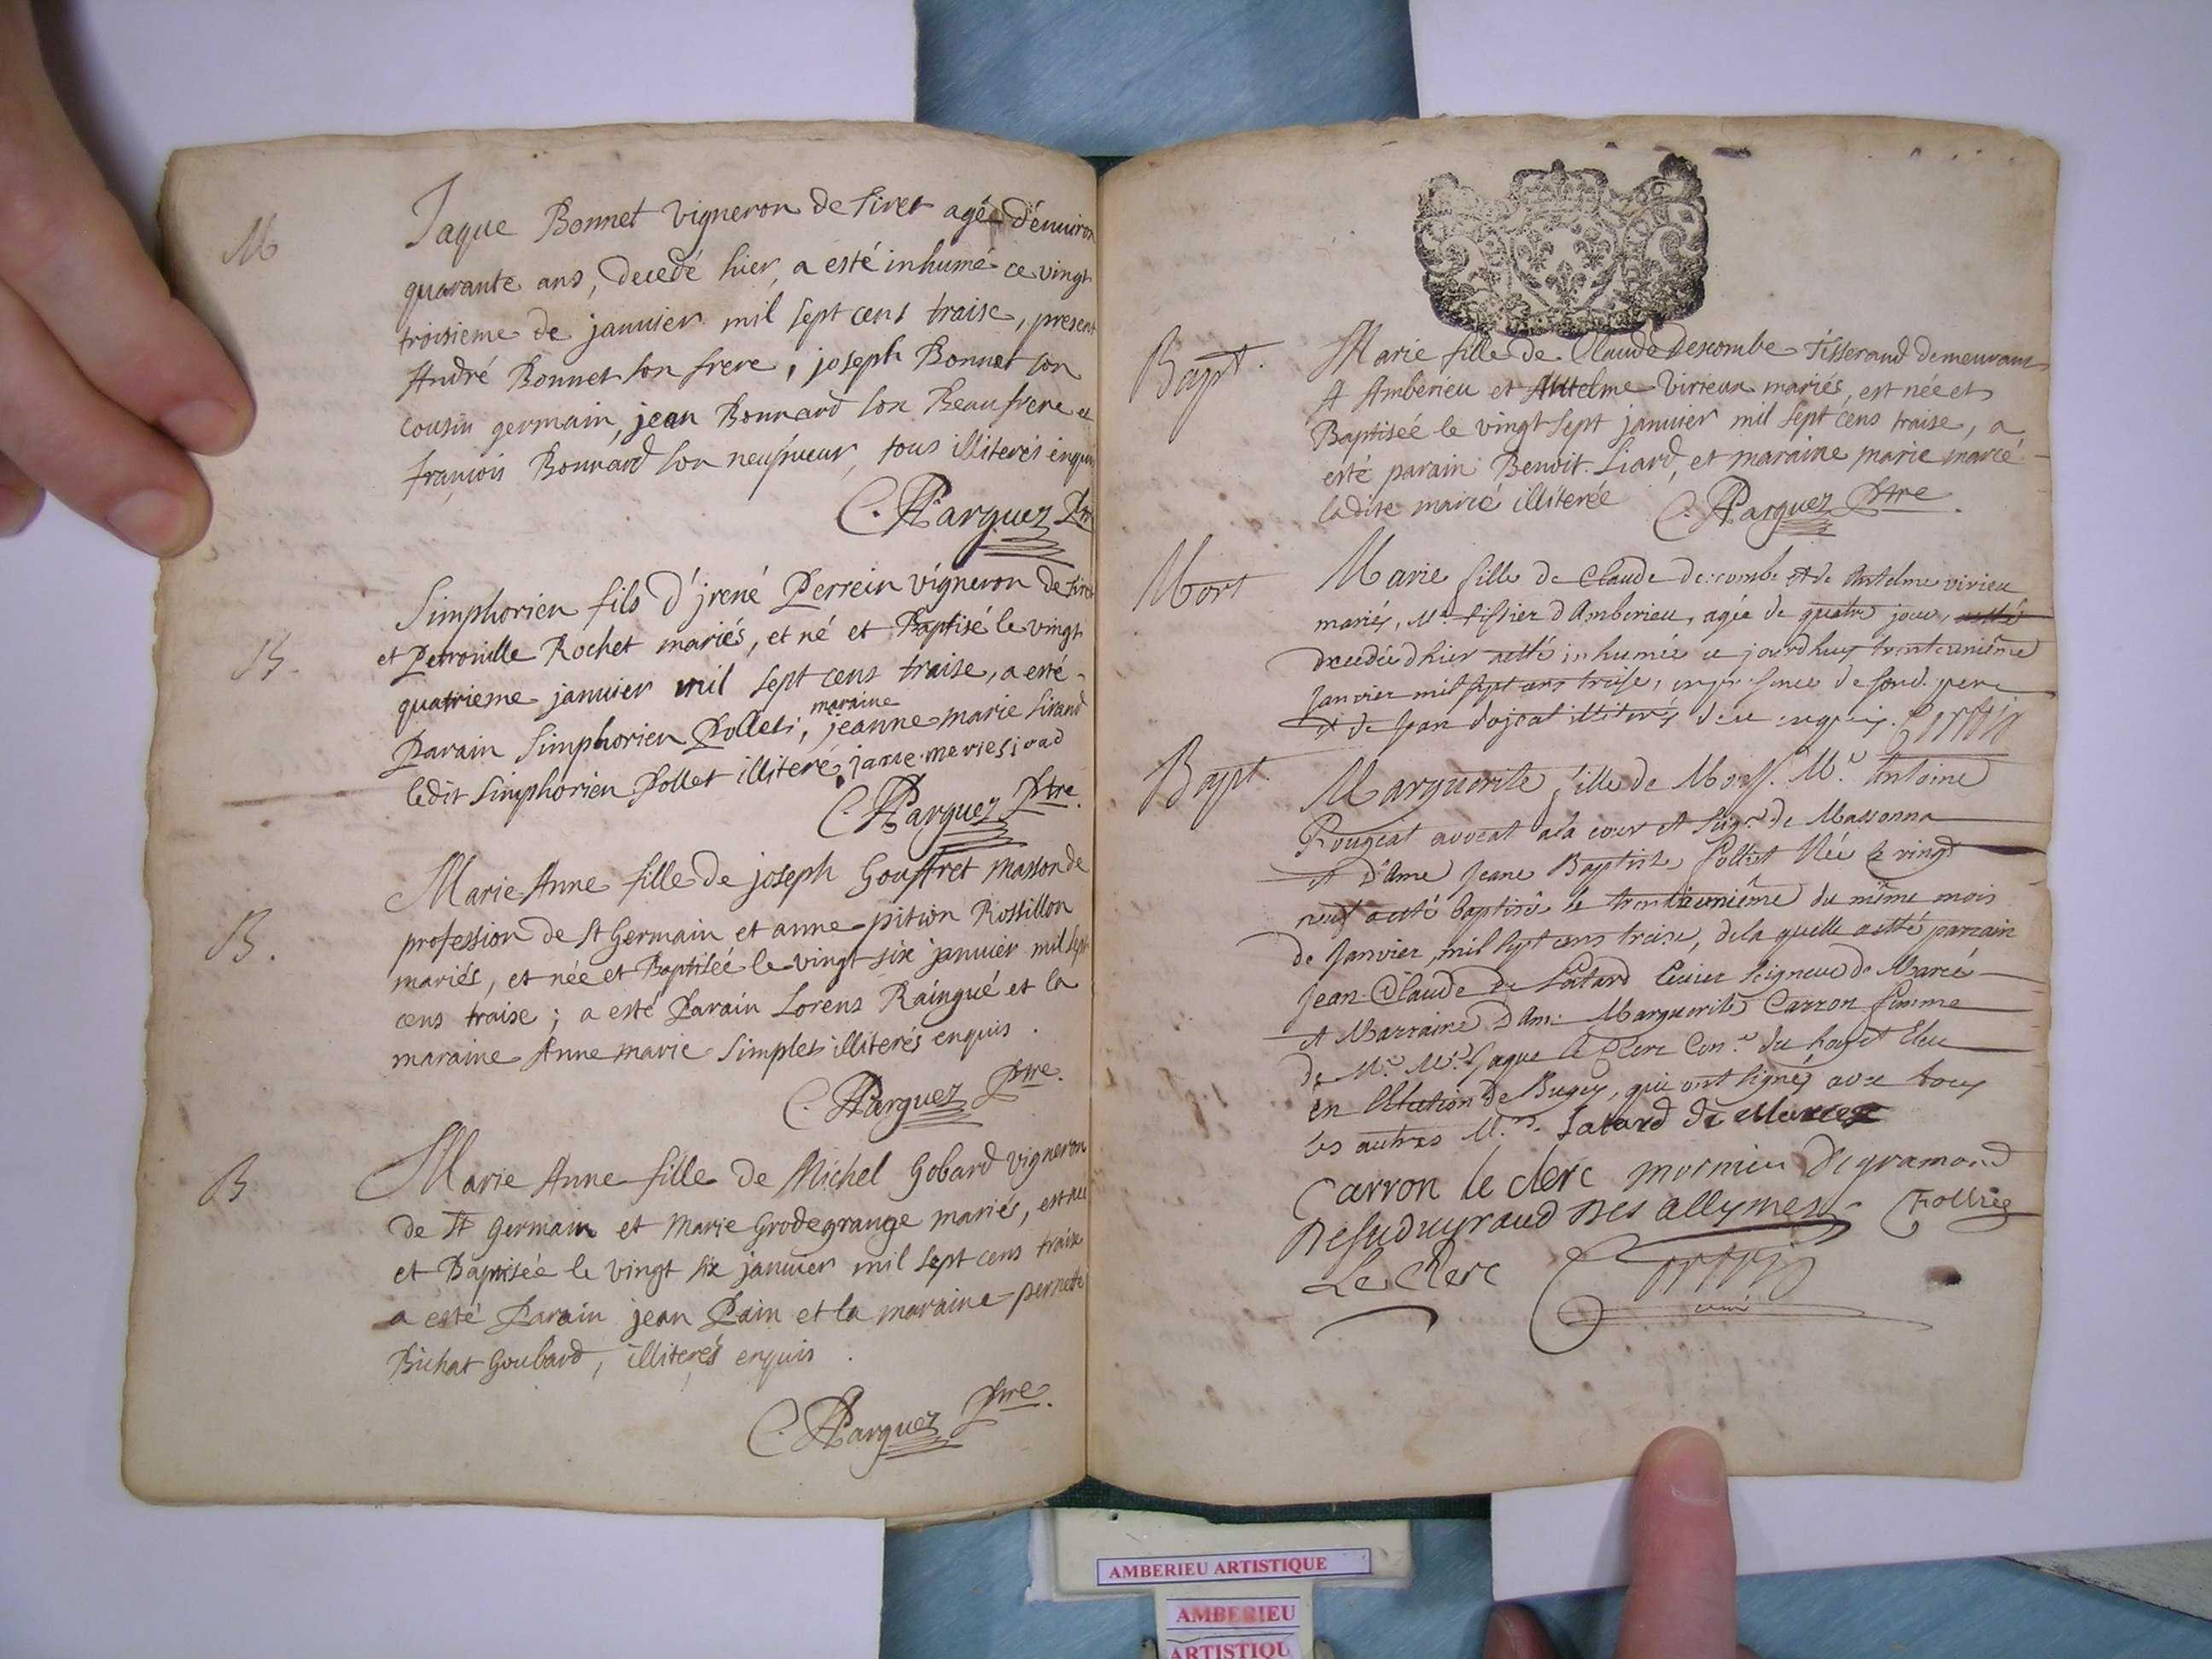 M
Jaque Bonnet vigneron de tiret agé d'énuiron
quarante ans, decedé hier, a esté inhumé ce vingt
troisieme de januier mil sept cens traise, present
André Bonnet son frere, joseph Bonnet son
cousin germain, jean Bonnard son Beaufrere et
françois Bonnard son neuſueur, tous illiterés enquis
C. Parguez Ptre
B.
Simphorien fils d'jrené Perrein vigneron de tiret
et Petronille Rochet mariés, et né et Baptisé le vingt
quatrieme januier mil sept cens traise, a esté
Parain Simphorien Pollet, maraine jeanne marie Sirand
ledit Simphorien Pollet illiteré, jane marie sirad
C. Parguez Ptre.
B.
Marie Anne fille de joseph Gouffret masson de
profession de St Germain et anne pition Rossillon
mariés, et née et Baptisée le vingt six januier mil sept
cens traise; a esté Parain Lorens Raingué et la
maraine Anne marie Simplet illiterés enquis.
C. Parguez Ptre.
B
Marie Anne fille de Michel Gobard vigneron
de St Germain et Marie Grodegrange mariés, est née
et Baptisée le vingt six januier mil sept cens traise
a esté Parain jean Pain et la maraine pernette
Bichat Goubard, illiterés enquis.
C. Parguez Ptre.
Bapt.
Marie fille de Claude Descombe tisserand demeurant
A Amberieu et Antelme Virieux mariés, est née et
Baptisée le vingt sept januier mil sept cens traise, a
esté parain Benoit Liard, et maraine marie marcé
ladite marcé illiterée C. Parguez Ptre.
Mort
Marie fille de Claude decombe et de Antelme virieu
mariés, Mre tissier d'Amberieu, agée de quatre jour,
decedée d'hier a esté inhumée ce jourd'huy trente unième
Janvier mil sept cens treise, en presence de son d. pere
et de Jean dojeat illiterés de ce enquis.
Bapt.
Marguerite fille de Mre Antoine
Rougeat avocat a la cour et seigr de Massonna
et D'ame Jeane Baptiste Folliet Née le vingt
neuf a esté baptisée le trente unième du même mois
de Janvier, mil sept cens treise, de la quelle a esté parrain
Jean Claude de Latard Ecuier seigneur de Marcé
et Marraine Dame Marguerite Carron femme
de Mr. Mre Jaque le Clerc Conr du Roy et Eleu
en l'Election de Bugey, qui ont signé, avec tous
les autres Mrs. Latard de Marcez
Carron le clerc mornieu de gramond
des allymes Folliet
Le Clerc
curé
AMBERIEU ARTISTIQUE
AMBERIEU
ARTISTIQU